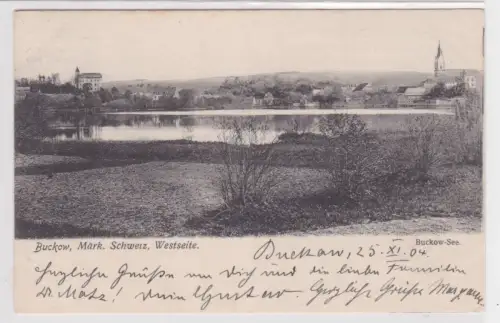 Buckow, Märk. Schweiz, Westseite.
Buckow-See.
Buckow, 25. XI. 04.
Herzliche Grüße an Dich und die liebe Familie
Dein Gustav. Herzliche Grüße